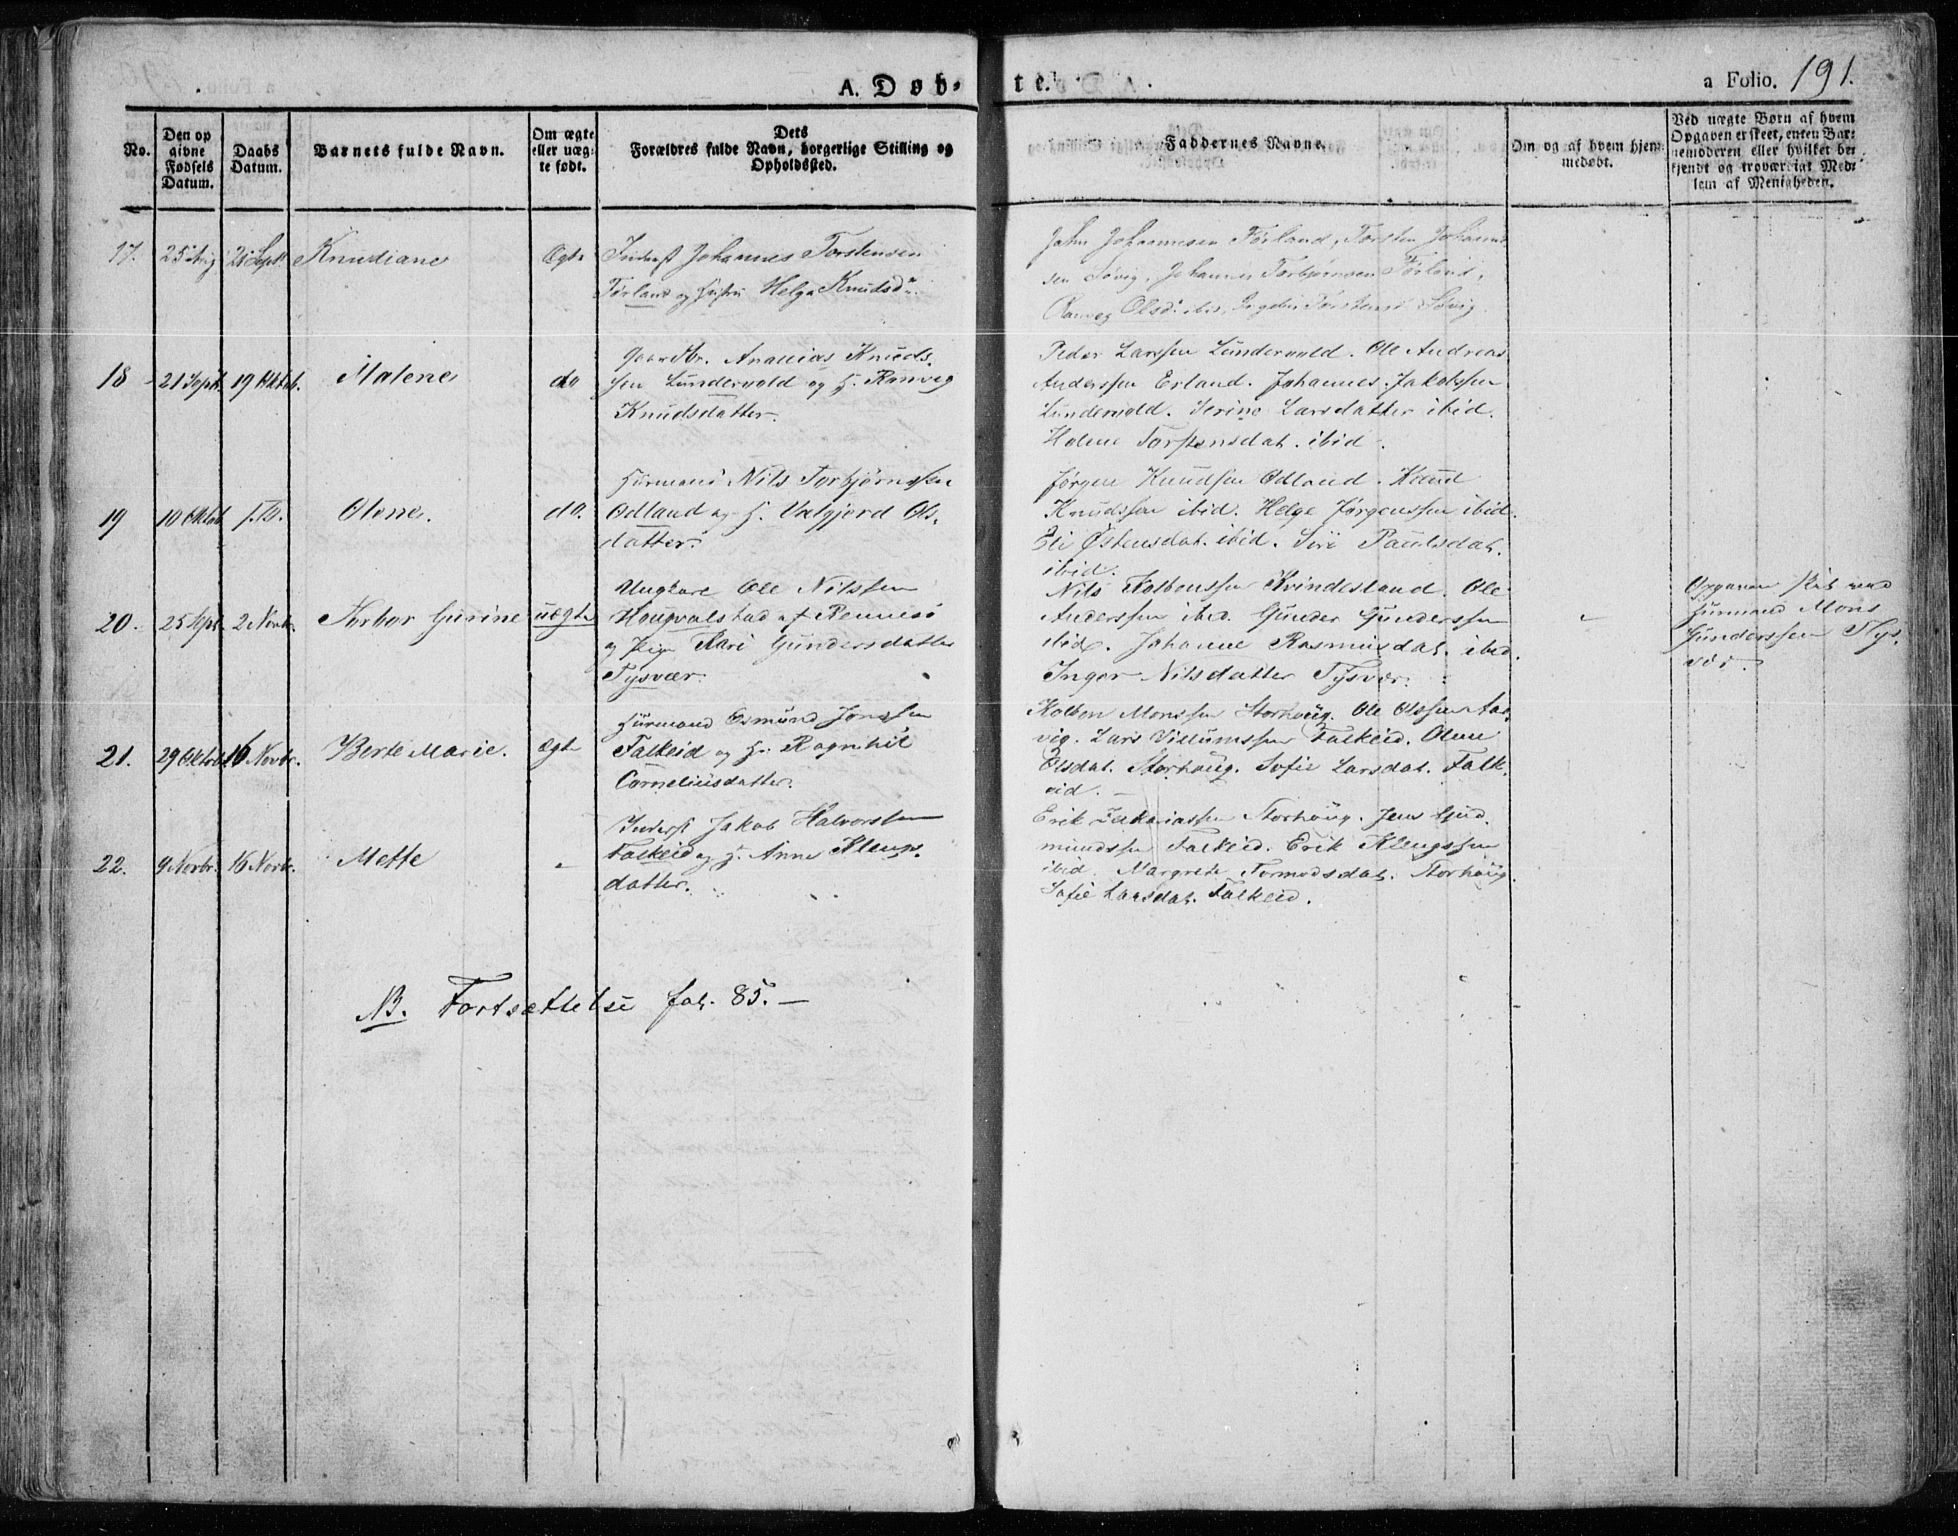 A. Døb-
te.
a Folio. 191.
No.
Den op
givne
Fødsels
Datum.
Daabs
Datum.
Barnets fulde Navn.
Om ægte
eller uæg-
te født.
Dets
Forældres fulde Navn, borgerlige Stilling og
Opholdssted.
Faddernes Navne.
Om og af hvem hjem-
medøbt.
Ved uægte Børn af hvem
Opgaven er skeet, enten Bar-
nemoderen eller hvilket be-
kjendt og troværdigt Med-
lem af Menigheden.
17. 25 Aug 21 Sept. Knudiane Ægte
Inderst Johannes Torstensen
Førland og Hustru Helga Knudsd.
John Johannesen Førland, Torsten Johanne-
sen Søvig, Johannes Torbjørnsen Førland,
Olsd. ibid, Torstensd Søvig.
18 21 Sept. 19 Oktob. Malene do
Gaardbr. Ananias Knuds-
sen Lundervold og H. Ranveg
Knudsdatter.
Peder Larssen Lundervold. Ole Andreas
Anderssen Erland. Johannes Jakobssen
Lundervold. Serine Larsdatter ibid.
Helene Torstensdat. ibid.
19 10 Oktob. s. D. Olene. do.
Huusmand Nils Torbjørnssen
Odland og H. Valgjerd Ols-
datter.
Jørgen Knudsen Odland. Knud
Knudssen ibid. Helge Jørgenssen ibid.
Eli Østensdat. ibid. Siri Paulsdat.
ibid.
20. 25 Sept. 2 Novb. Norbor Gurine uægte
Ungkare Ole Nilssen
Hougvalstad af Rennesø
og Pige Kari Gundersdatter
Tysvær.
Nils Kolbenssen Kvindesland. Ole
Anderssen ibid. Gunder Gunderssen
ibid. Johanne Rasmusdat. ibid.
Inger Nilsdatter Tysvær.
Opgaven skeet ved
Huusmand Mons
Gunderssen Tys-
vær.
21. 29 Oktob. 16 Novbr. Berte Marie. Ægte
Huusmand Osmund Jonssen
Falkeid og H. Ragnhil
Corneliusdatter.
Kolben Monssen Storhoug. Ole Olssen Aar-
vig. Lars Villumssen Falkeid. Olene
Olsdat. Storhoug. Sofie Larsdat. Falk-
eid.
22. 9 Novbr. 16 Novbr. Mette -
Inderst Jakob Halvorssen
Falkeid og H. Anne Klengs-
datter.
Erik Zakariassen Storhoug. Jens Gud-
mundssen Falkeid. Erik Klengssen
ibid. Margrete Tormodsdat. Storhoug.
Sofie Larsdat. Falkeid.
NB. Fortsættelse fol. 85. -